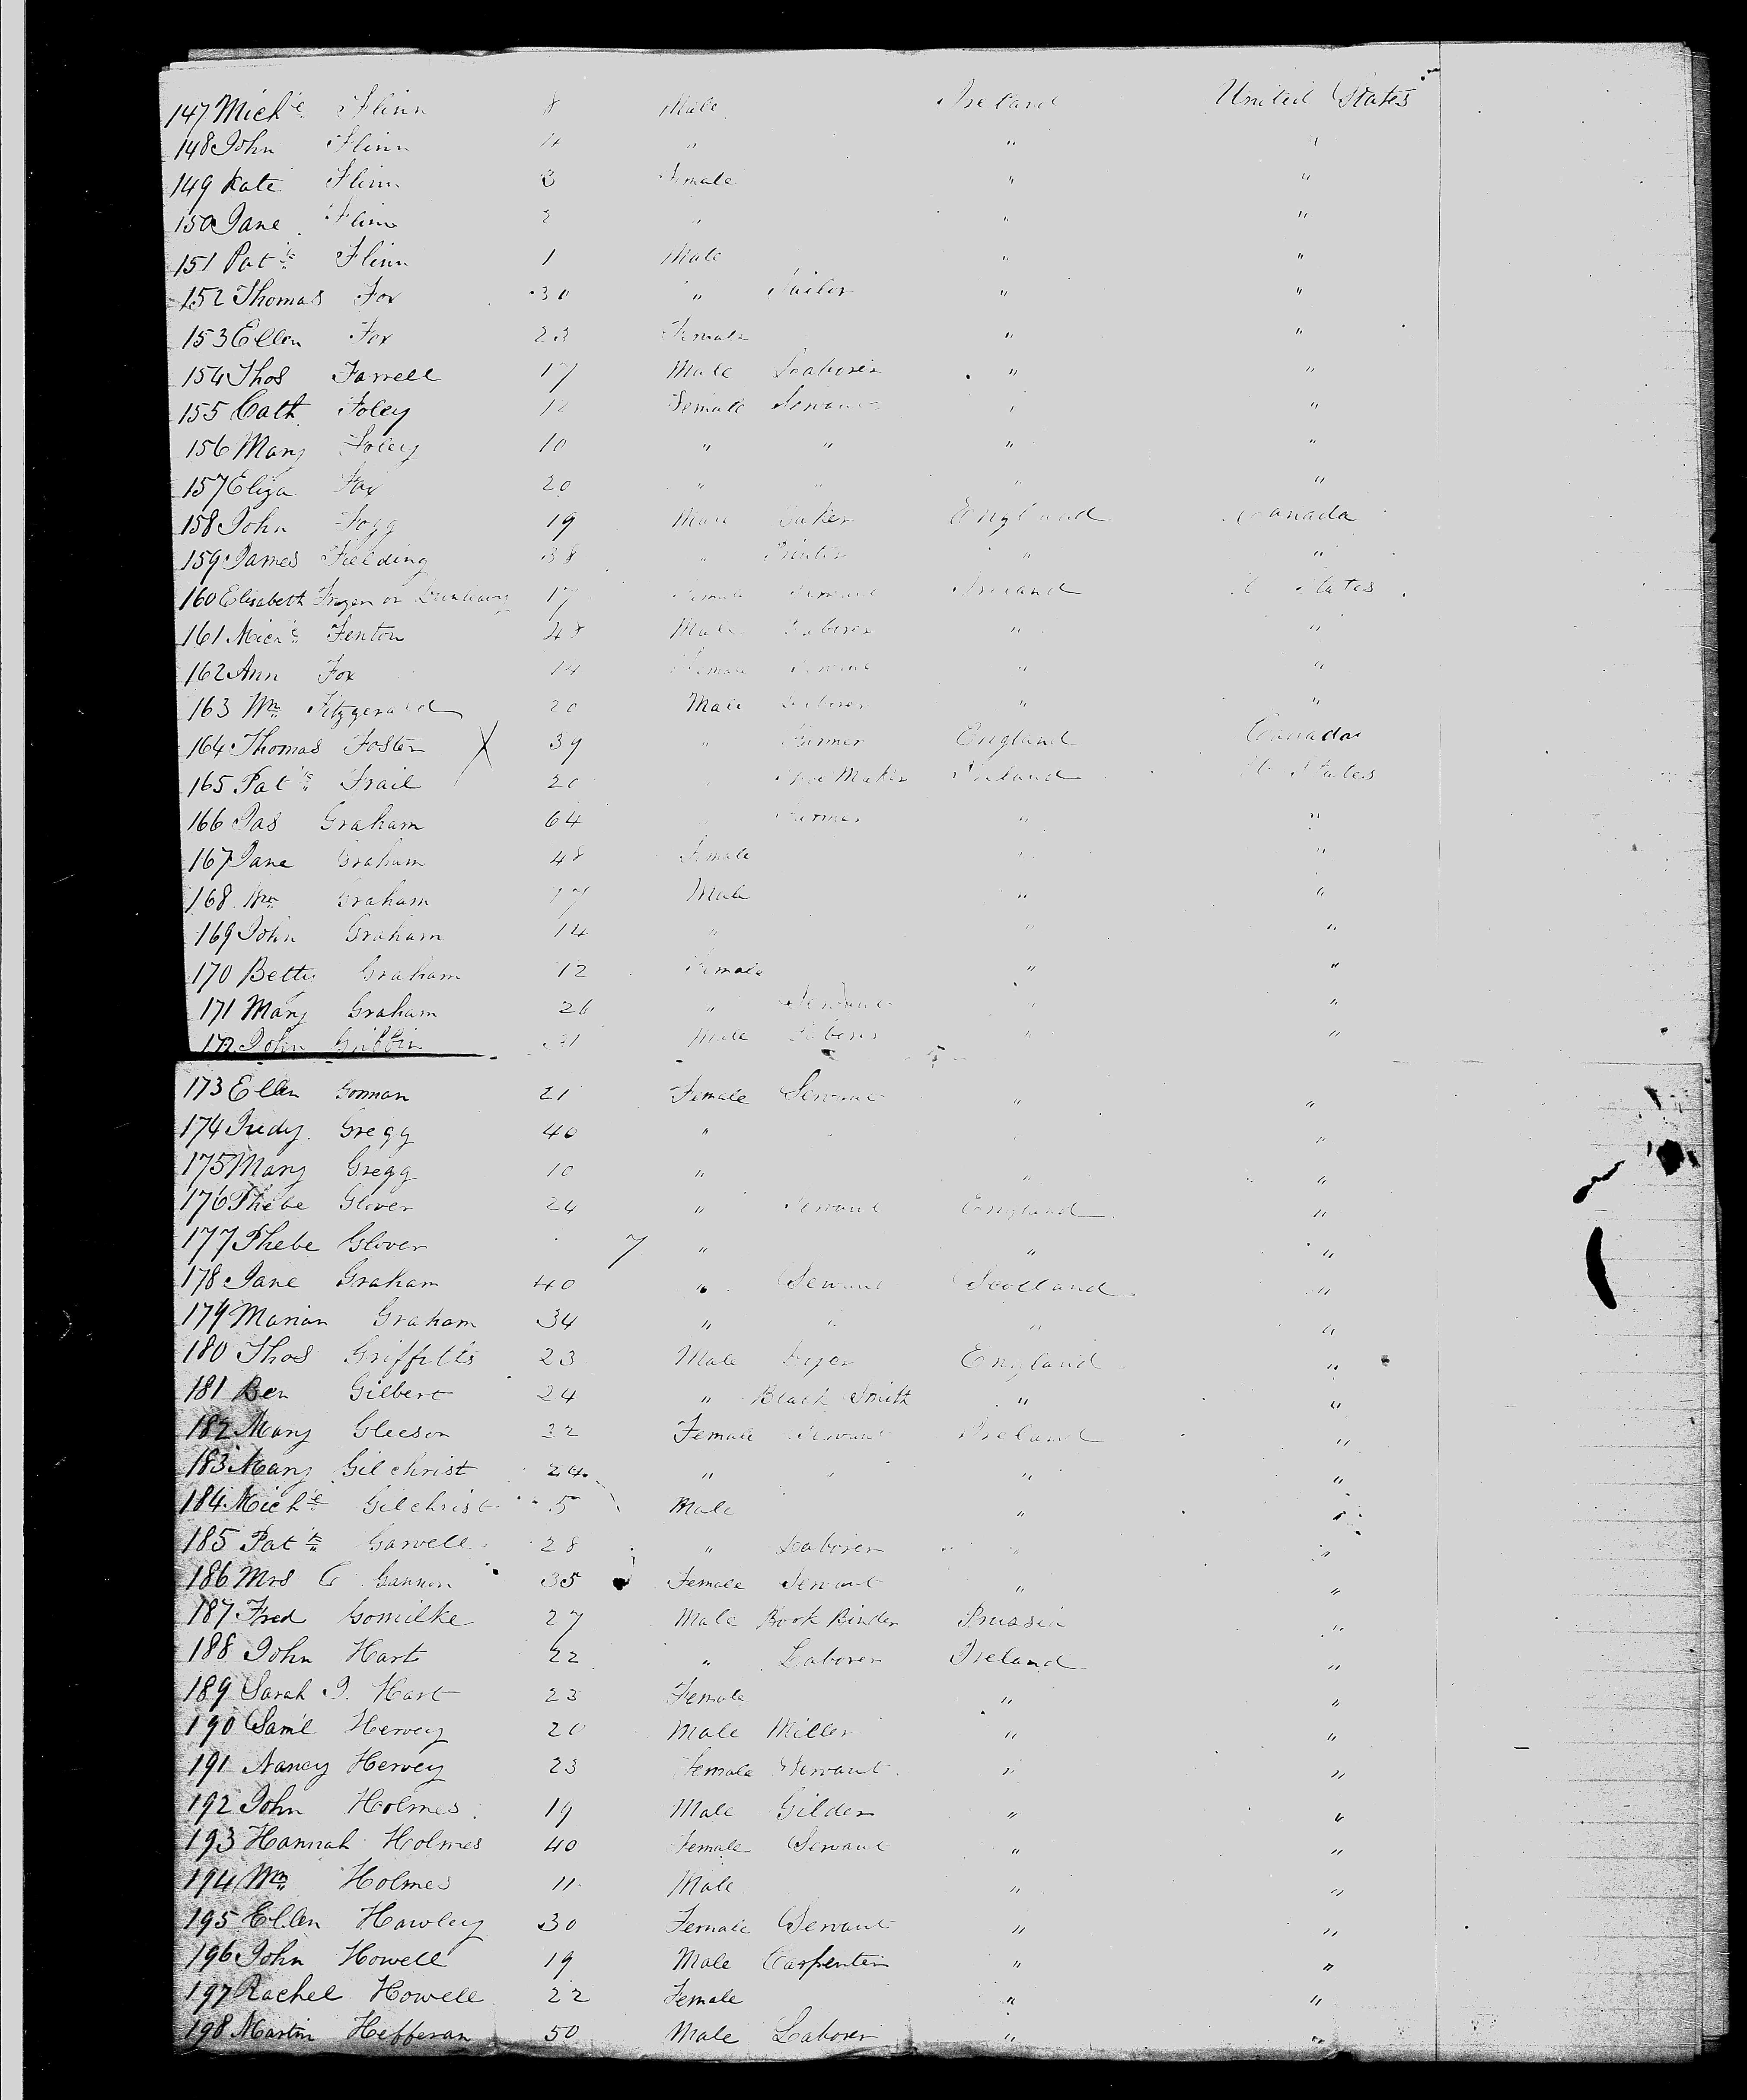 147 Mich'l Flinn 8 Male Ireland United States
148 John Flinn 4 " " "
149 Kate Flinn 3 Female " "
150 Jane Flinn 2 " " "
151 Pat'k Flinn 1 Male " "
152 Thomas Fox 30 " Tailor " "
153 Ellen Fox 23 Female " "
154 Thos Farrell 17 Male Laborer " "
155 Cath Foley Female Servant " "
156 Mary Foley 10 " " " "
157 Eliza Fox 20 " " " "
158 John Fogg 19 Male Baker England Canada
159 James Fielding 38 " " "
160 Elisabeth or 17 Female Servant Ireland U States
161 Mich'l Fenton 48 Male Laborer " "
162 Ann Fox 14 Female Servant " "
163 Wm Fitzgerald 20 Male Laborer " "
164 Thomas Foster X 39 " Farmer England Canada
165 Pat'k Frail 20 " Shoe Maker Ireland U States
166 Jas Graham 64 " Farmer " "
167 Jane Graham 48 Female " "
168 Wm Graham 17 Male " "
169 John Graham 14 " " "
170 Betty Graham 12 Female " "
171 Mary Graham 26 " Servant " "
172 John Gribbin Male Laborer " "
173 Ellen Gorman 21 Female Servant " "
174 Judy Gregg 40 " " " "
175 Mary Gregg 10 " " "
176 Phebe Glover 24 " Servant England "
177 Phebe Glover 7 " " "
178 Jane Graham 40 " Servant Scotland "
179 Marian Graham 34 " " " "
180 Thos Griffitts 23 Male Dyer England "
181 Ben Gilbert 24 " Black Smith " "
182 Mary Gleeson 32 Female Servant Ireland "
183 Mary Gilchrist 24 " " " "
184 Mich'l Gilchrist 5 Male " "
185 Pat'k Garvell 28 " Laborer " "
186 Mrs C Gannon 35 Female Servant " "
187 Fred Gomilke 27 Male Book Binder Prussia "
188 John Hart 22 " Laborer Ireland "
189 Sarah J. Hart 23 Female " "
190 Sam'l Hervey 20 Male Miller " "
191 Nancy Hervey 23 Female Servant " "
192 John Holmes 19 Male Gilder " "
193 Hannah Holmes 40 Female Servant " "
194 Wm Holmes 11 Male " "
195 Ellen Hawley 30 Female Servant " "
196 John Howell 19 Male Carpenter " "
197 Rachel Howell 22 Female " "
198 Martin Hefferan 50 Male Laborer " "